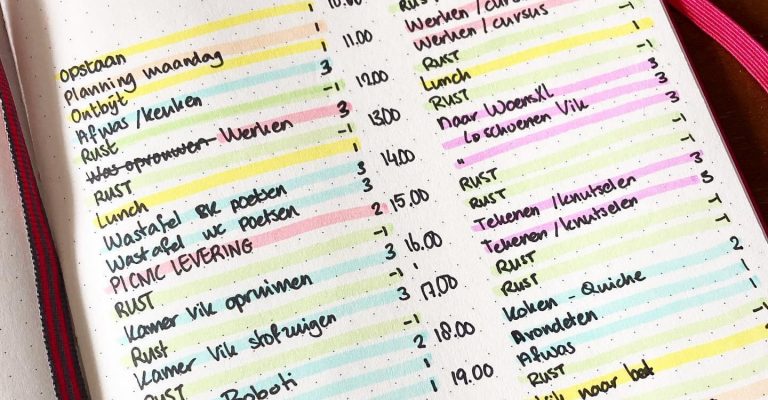 Opstaan 1
Planning maandag 1
Ontbijt 1
Afwas /keuken 3
RUST -1
Was opvouwen Werken 3
RUST -1
Lunch 1
Wastafel BK poetsen 3
Wastafel wc poetsen 3
PICNIC LEVERING 2
RUST -1
Kamer Vik opruimen 3
Rust -1
Kamer Vik stofzuigen 3
RUST -1
Roboti 2
1
10.00
11.00
12.00
13.00
14.00
15.00
16.00
17.00
18.00
19.00
RUST
Werken / cursus
Werken / cursus
RUST -1
Lunch 1
RUST -1
Naar WoensXL 3
schoenen Vik 3
" 3
RUST -1
RUST -1
Tekenen /knutselen 3
Tekenen /knutselen 3
RUST -1
RUST -1
Koken - Quiche 2
Avondeten 1
Afwas 1
RUST -1
Vik naar bed